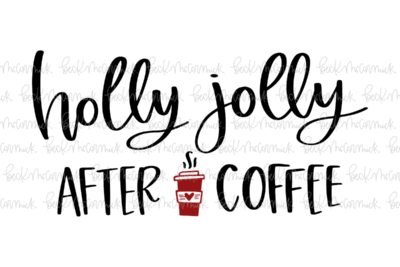 holly jolly
AFTER COFFEE